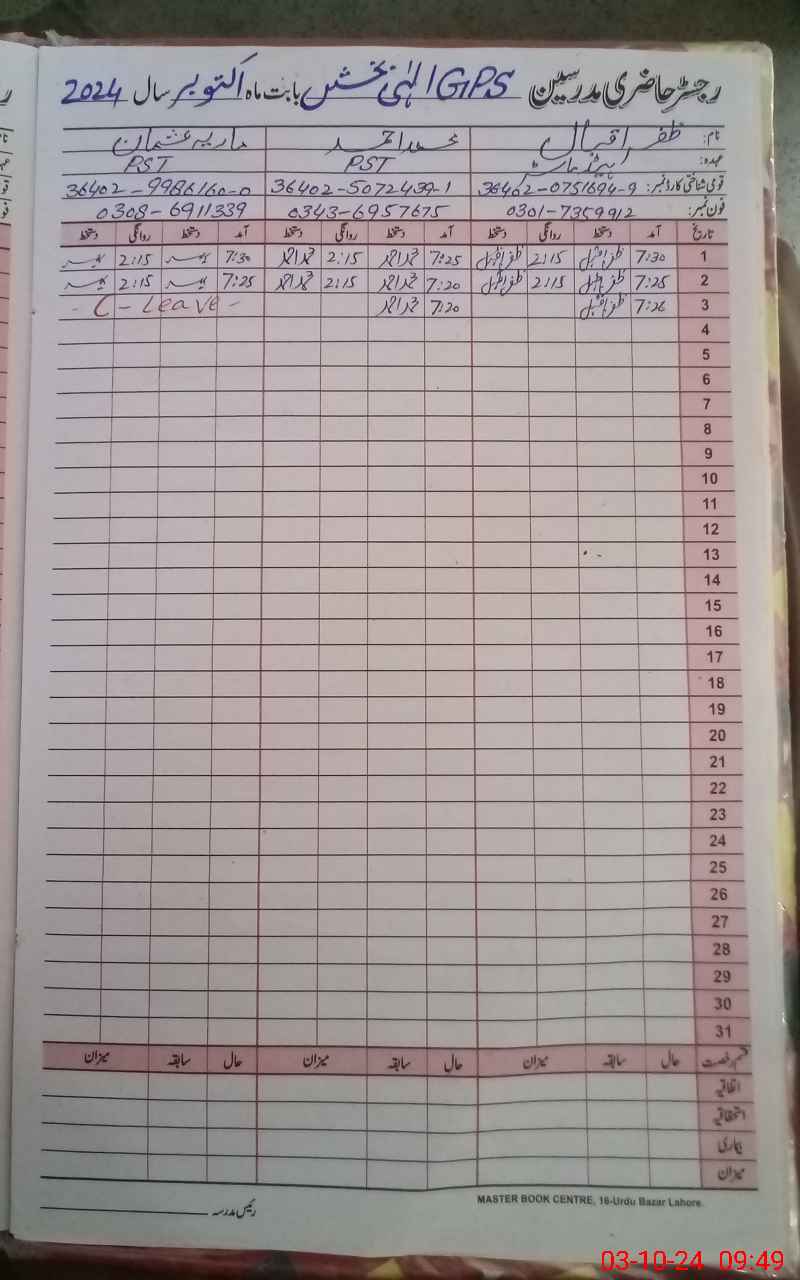 رجسٹر حاضری مدرسین GPS الٰہی بخش بابت ماہ اکتوبر سال 2024
نام: ظفر اقبال محمد احمد ماریہ عثمان
عہدہ: ہیڈ ماسٹر PST PST
قومی شناختی کارڈ نمبر: 36402-0751694-9 36402-5072439-1 36402-9986160-0
فون نمبر: 0301-7359912 0343-6957675 0308-6911339
تاریخ آمد دستخط روانگی دستخط آمد دستخط روانگی دستخط آمد دستخط روانگی دستخط
1 7:30 ظفر اقبال 2:15 ظفر اقبال 7:25 محمد احمد 2:15 محمد احمد 7:30 2:15
2 7:25 ظفر اقبال 2:15 ظفر اقبال 7:20 محمد احمد 2:15 محمد احمد 7:25 2:15
3 7:26 ظفر اقبال 7:20 محمد احمد - C - Leave -
4
5
6
7
8
9
10
11
12
13
14
15
16
17
18
19
20
21
22
23
24
25
26
27
28
29
30
31
قسم رخصت حال سابقہ میزان حال سابقہ میزان حال سابقہ میزان
اتفاقیہ
استحقاقیہ
بیماری
میزان
رئیس مدرسہ
MASTER BOOK CENTRE, 16-Urdu Bazar Lahore.
03-10-24 09:49